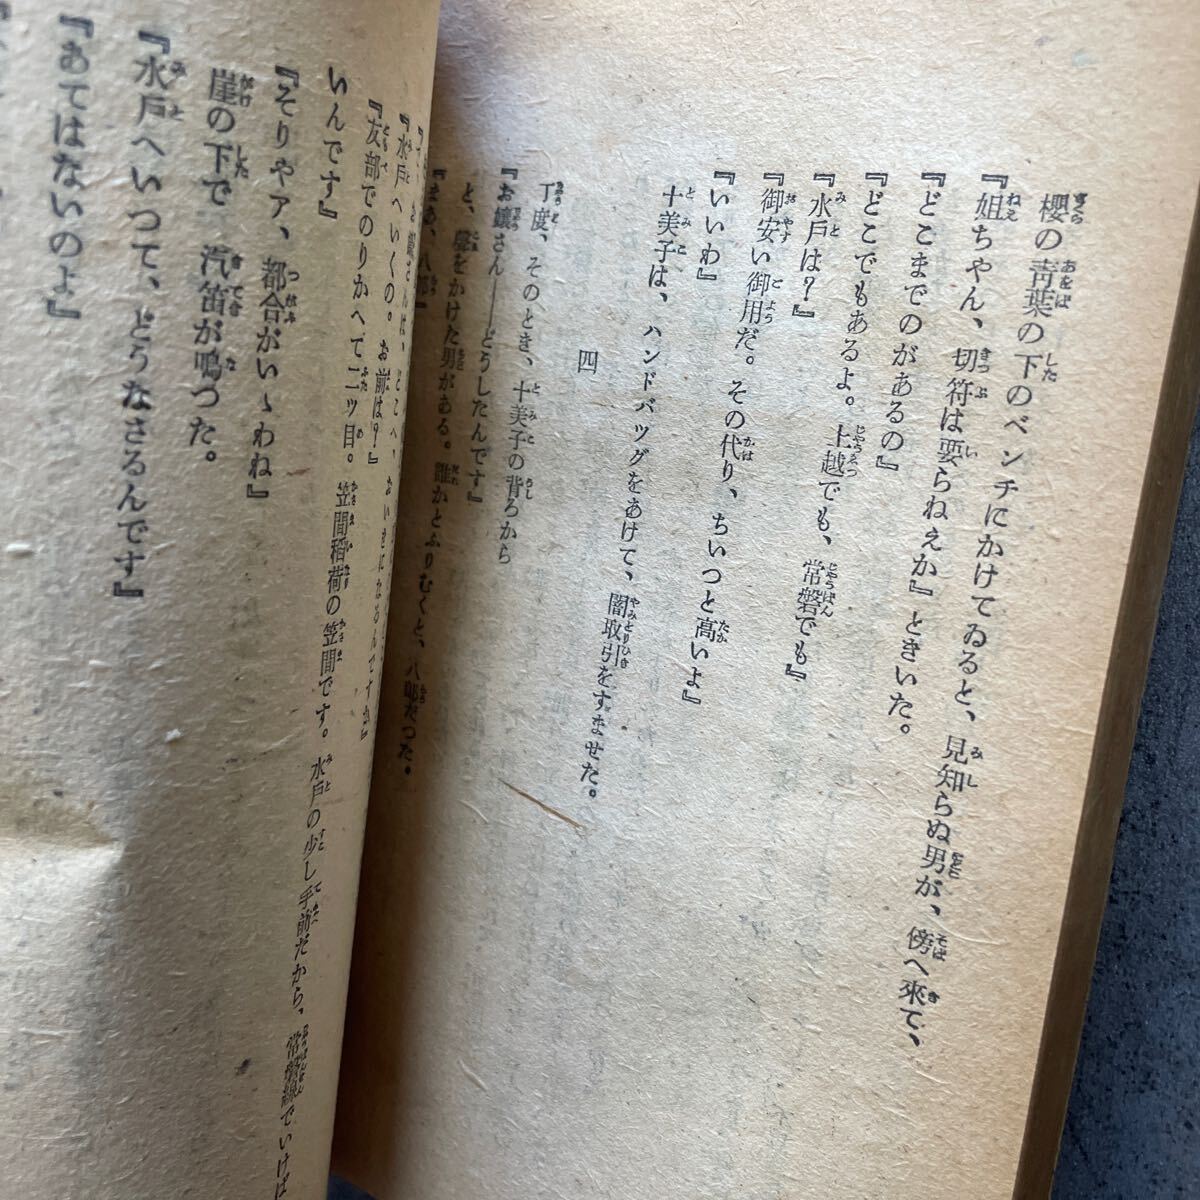 櫻の青葉の下のベンチにかけてゐると、見知らぬ男が、傍へ來て、
『姐ちやん、切符は要らねえか』ときいた。
『どこまでのがあるの』
『どこでもあるよ。上越でも、常磐でも』
『水戸は?』
『御安い御用だ。その代り、ちいつと高いよ』
『いいわ』
十美子は、ハンドバツグをあけて、闇取引をすませた。
四
丁度、そのとき、十美子の背ろから
『お嬢さん――どうしたんです』
と、聲をかけた男がある。誰かとふりむくと、八郎だつた。
『まあ、八郎』
『水戸へいくの。お前は?』
『友部でのりかへて二ツ目。笠間稲荷の笠間です。水戸の少し手前だから、常磐線でいけば
いんです』
『そりやア、都合がいゝわね』
崖の下で、汽笛が鳴つた。
『水戸へいつて、どうなさるんです』
『あてはないのよ』